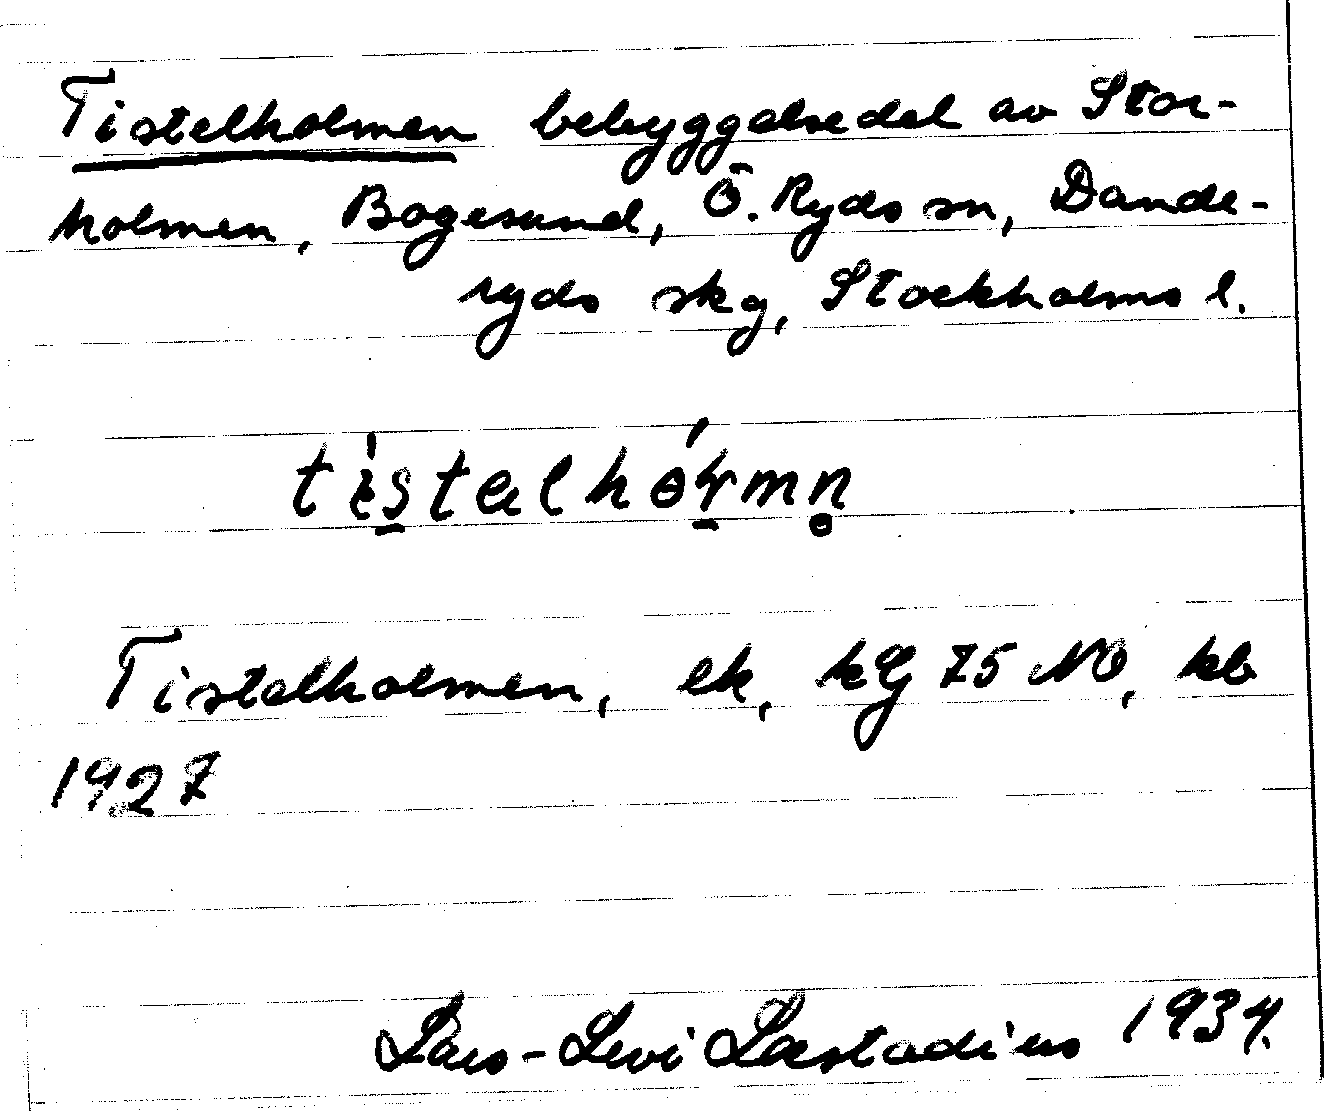 Tistelholmen bebyggelsedel av Stor-
holmen, Bogesund, Ö. Ryds sn, Dande-
ryds skg, Stockholms l.
Tistelholmen, ek, kG 75 NO, kb
1927
Lars-Levi Læstadius 1934.